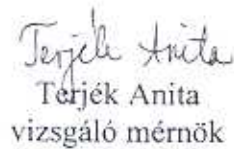 Terjék Anita
Terjék Anita
vizsgáló mérnök